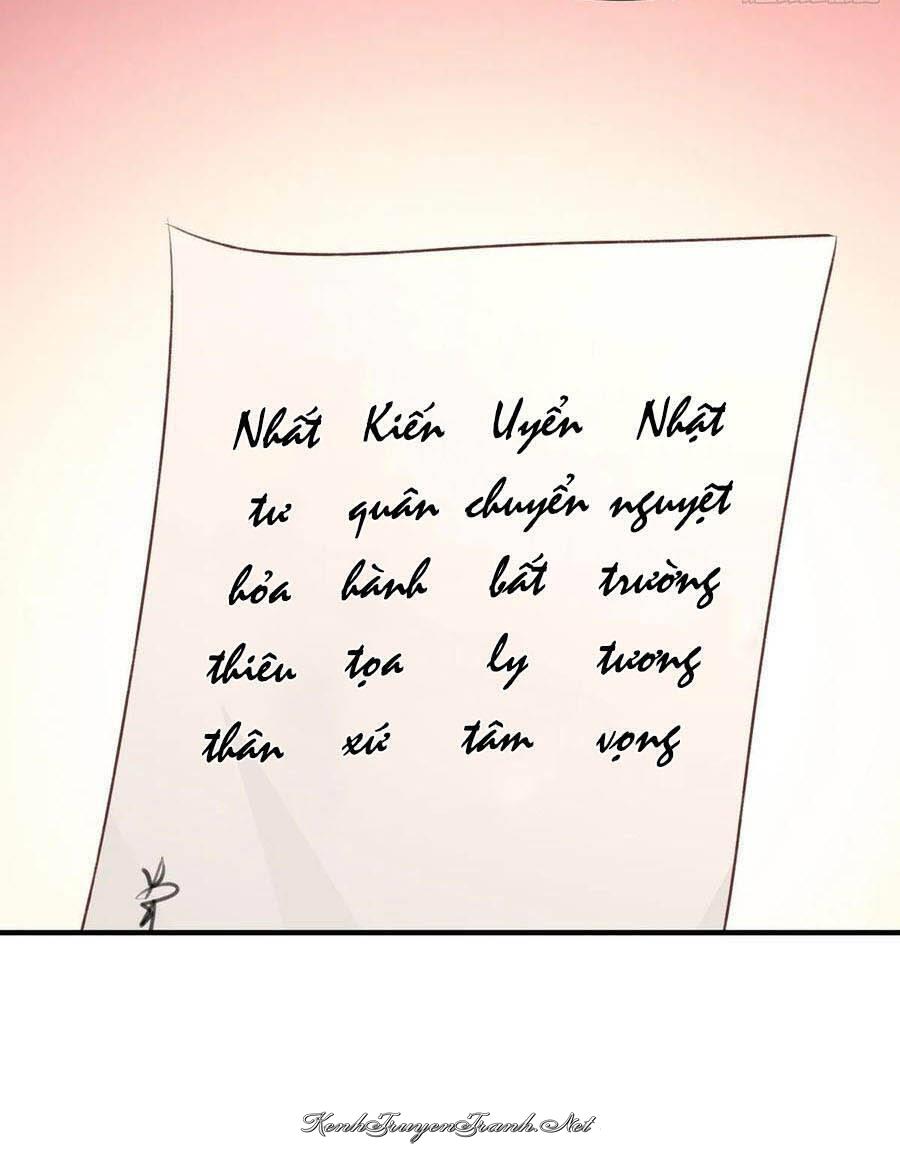 Nhất Kiến Uyển Nhật
tư quân chuyển nguyệt
hỏa hành bất trường
thiêu tọa ly tương
thân xứ tâm vọng
KenhTruyenTranh.Net